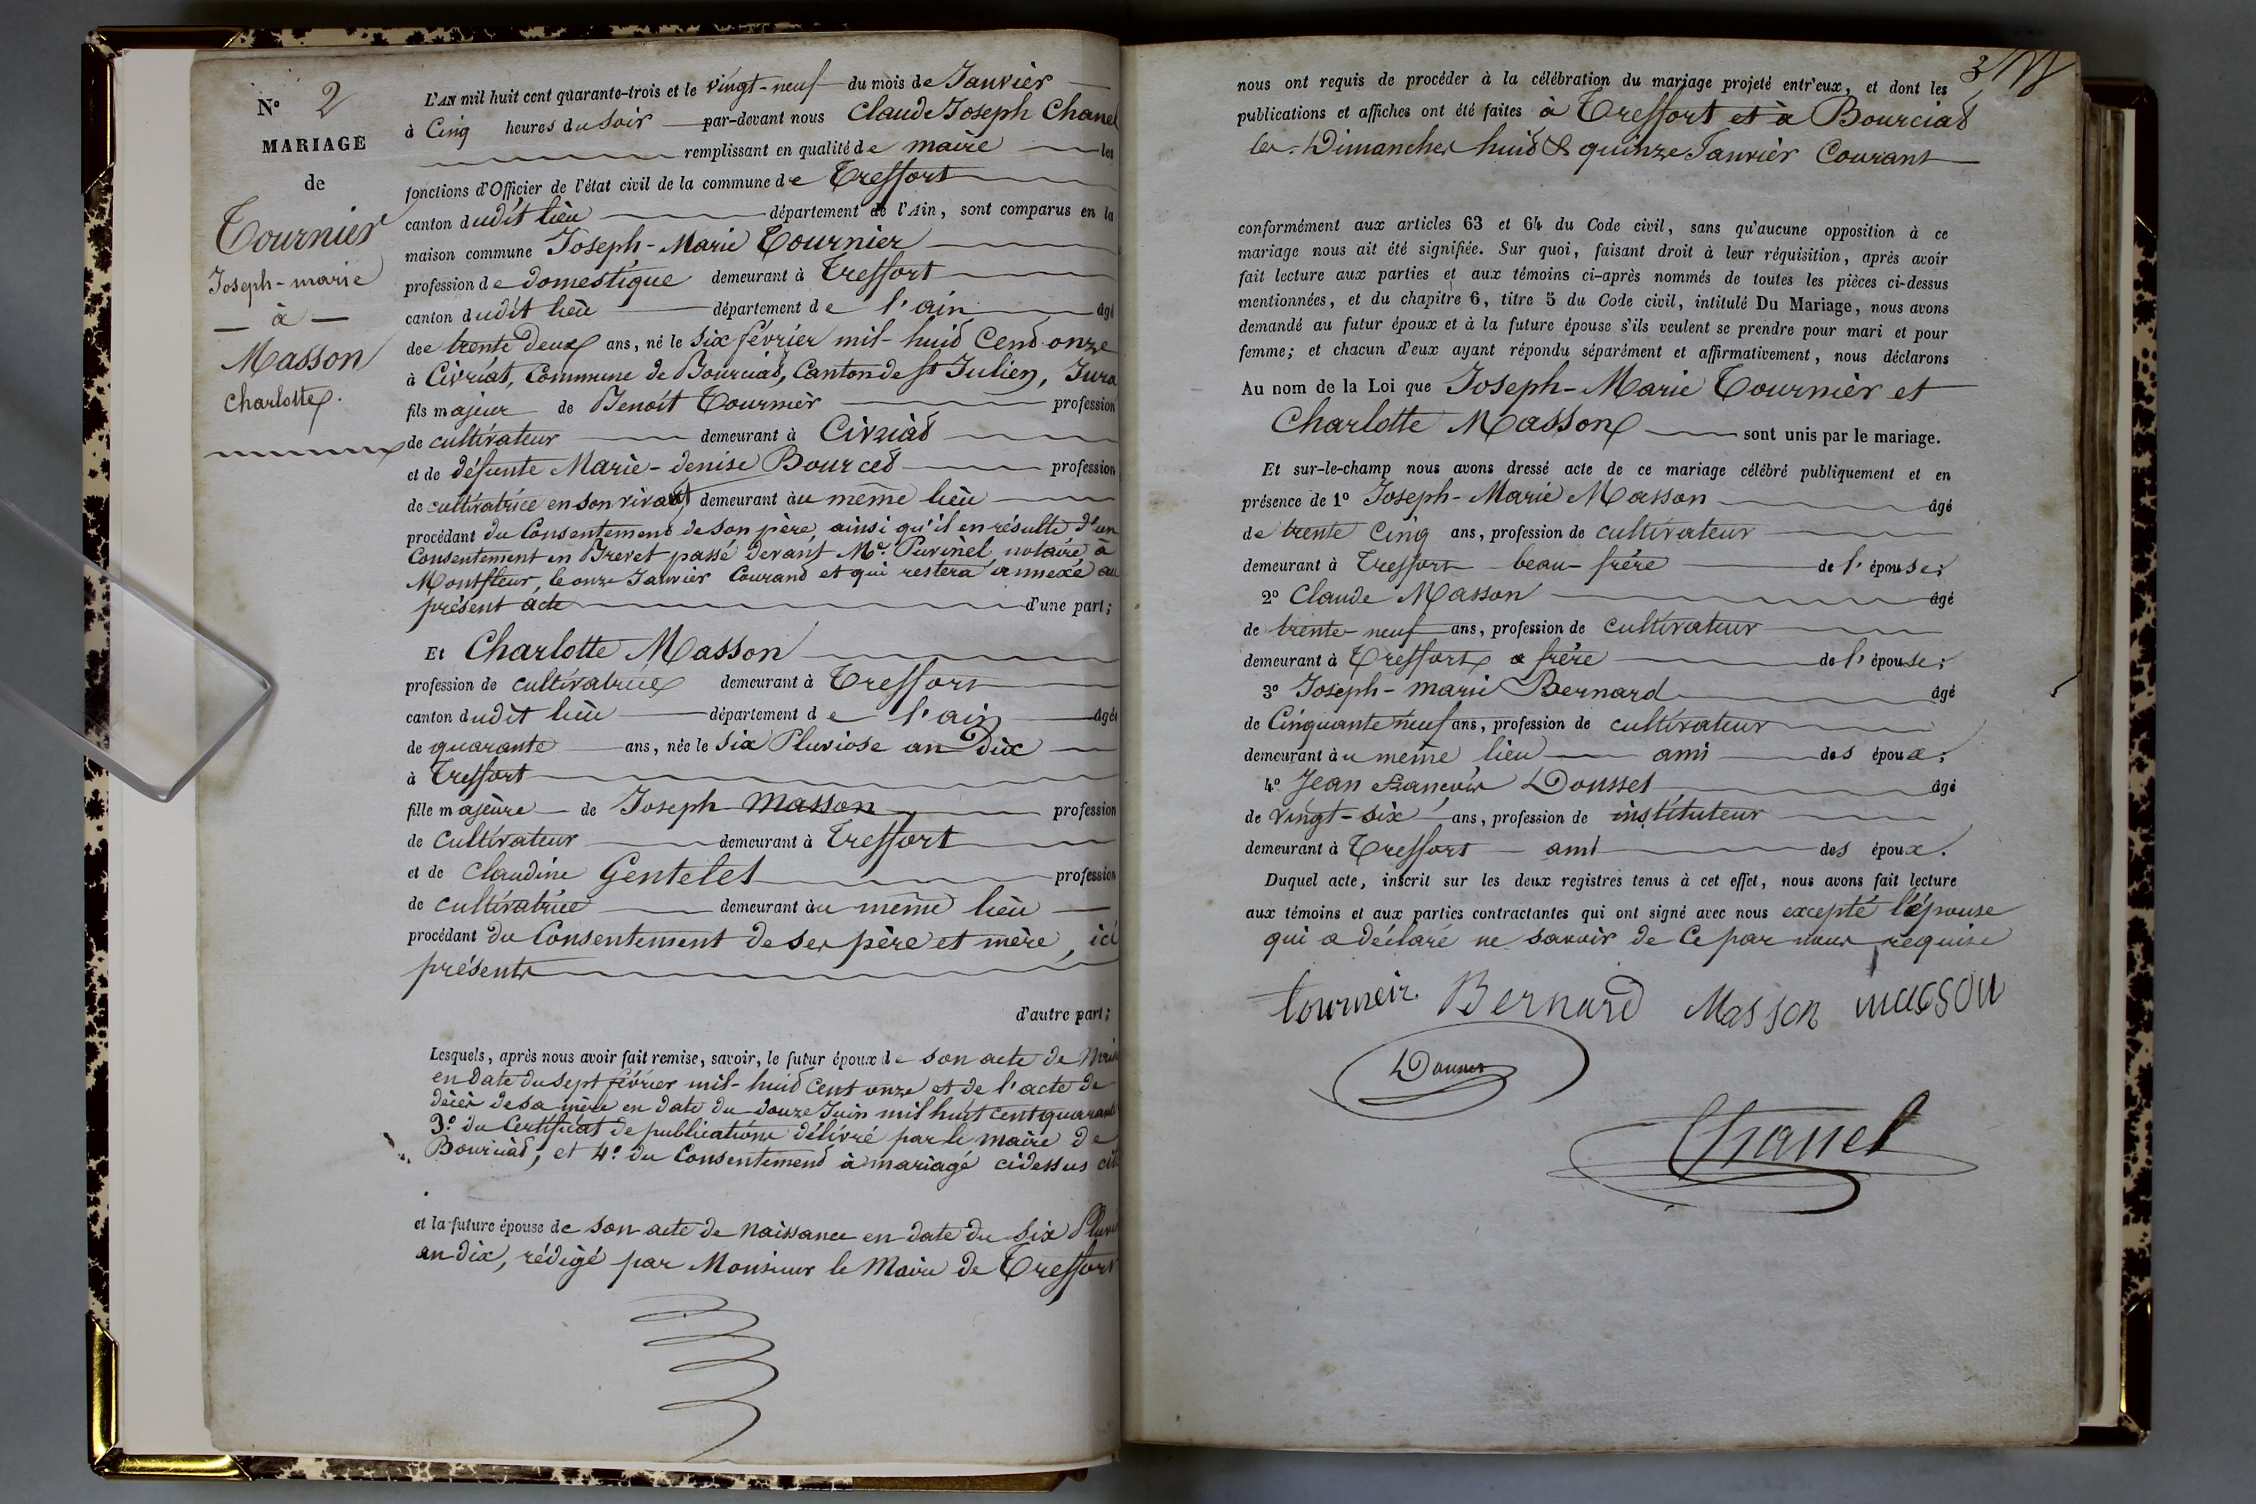 N° 2
MARIAGE
de
Tournier
Joseph-marie
— à —
Masson
Charlotte.
L'AN mil huit cent quarante-trois et le vingt-neuf du mois de Janvier
à Cinq heures du Soir par-devant nous Claude Joseph Chanel
remplissant en qualité de maire les
fonctions d'Officier de l'état civil de la commune de Treffort
canton dudit lieu département de l'Ain, sont comparus en la
maison commune Joseph-Marie Tournier
profession de domestique demeurant à Treffort
canton dudit lieu département de l'ain âgé
dee trente deux ans, né le Six février mil-huid Cend onze
à Civriat, Commune de Bourciad, Canton de St Julien, Jura
fils majeur de Benoit Tournier profession
de cultivateur demeurant à Civriad
et de défunte Marie-denise Bourced profession
de cultivatrice en son vivant demeurant au même lieu
procédant du Consentement de son père, ainsi qu'il en résulte d'un
Consentement en Brevet passé devant Me. notaire à
Montfleur, le onze Janvier Courand et qui restera annexé au
présent acte d'une part;
Et Charlotte Masson
profession de cultivatrice demeurant à Treffort
canton dudit lieu département de l'ain âgée
de quarante ans, née le Six Pluviose an Dix
à Treffort
fille majeure de Joseph Masson profession
de cultivateur demeurant à Treffort
et de Claudine Gentelet profession
de cultivatrice demeurant au même lieu
procédant du Consentement de ses père et mère, ici
présents
d'autre part;
Lesquels, après nous avoir fait remise, savoir, le futur époux de son acte de
en date du sept février mil-huid Cent onze et de l'acte de
décès de sa mère en date du douze Juin mil huit cent quarante
3° du Certificat de publications délivré par le maire de
Bourciad, et 4° du Consentemend à mariage cidessus cité
et la future épouse de son acte de naissance en date du Six
an dix, rédigé par Monsieur le Maire de Treffort
nous ont requis de procéder à la célébration du mariage projeté entr'eux, et dont les
publications et affiches ont été faites à Treffort et à Bourciad
les Dimanches huid & quinze Janvier Courant
conformément aux articles 63 et 64 du Code civil, sans qu'aucune opposition à ce
mariage nous ait été signifiée. Sur quoi, faisant droit à leur réquisition, après avoir
fait lecture aux parties et aux témoins ci-après nommés de toutes les pièces ci-dessus
mentionnées, et du chapitre 6, titre 5 du Code civil, intitulé Du Mariage, nous avons
demandé au futur époux et à la future épouse s'ils veulent se prendre pour mari et pour
femme; et chacun d'eux ayant répondu séparément et affirmativement, nous déclarons
Au nom de la Loi que Joseph-Marie Tournier et
Charlotte Masson sont unis par le mariage.
Et sur-le-champ nous avons dressé acte de ce mariage célébré publiquement et en
présence de 1° Joseph-Marie Masson âgé
de trente Cinq ans, profession de cultivateur
demeurant à Treffort beau-frère de l'épouse;
2° Claude Masson âgé
de trente-neuf ans, profession de cultivateur
demeurant à Treffort frère de l'épouse;
3° Joseph-marie Bernard âgé
de Cinquante neuf ans, profession de cultivateur
demeurant au même lieu ami des époux;
4° Jean François Dousset âgé
de vingt-six ans, profession de instituteur
demeurant à Treffort ami des époux.
Duquel acte, inscrit sur les deux registres tenus à cet effet, nous avons fait lecture
aux témoins et aux parties contractantes qui ont signé avec nous excepté l'épouse
qui a déclaré ne savoir de Ce par nous requise
tourneir Bernard Masson masson
Chanel